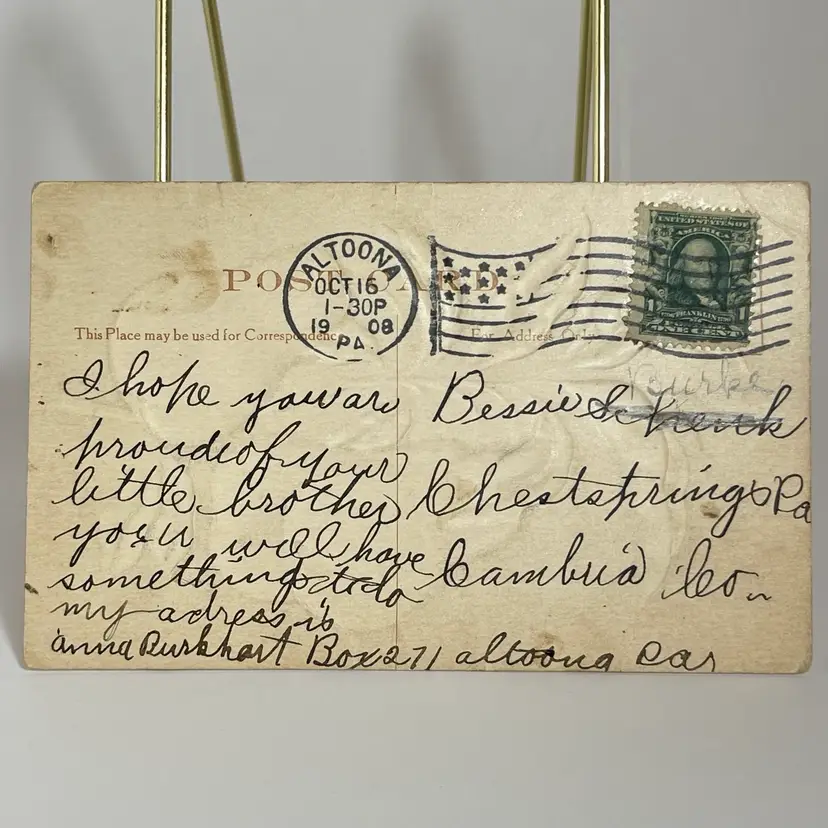 POST CARD
ALTOONA
OCT 16
1-30P
19 08
PA.
UNITED STATES OF
AMERICA
FRANKLIN
ONE CENT
This Place may be used for Correspondence
For Address Only
I hope you are
proud of your
little brother
you will have
something to do
my adress is
anna Burkhart Box 271 altoona Pa
Bourke
Bessie Schenk
Chestsprings Pa
Cambria Co.